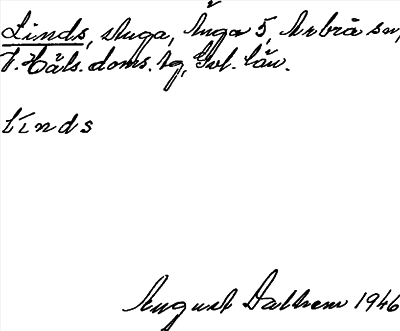 Linds, stuga, Änga 5, Arbrå sn,
V. Häls. doms. tg, Gvl. län.
linds
August Dalhem 1946